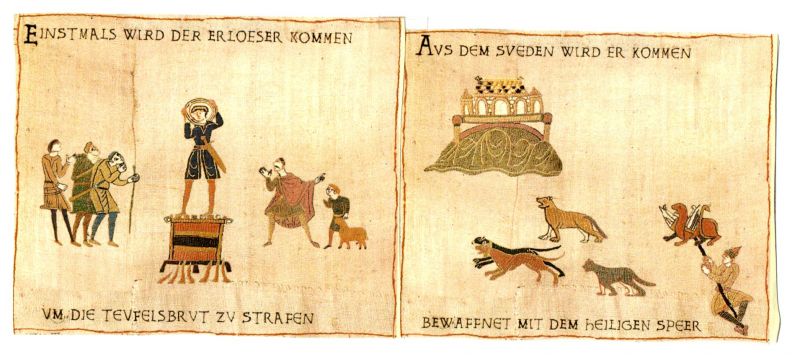 EINSTMALS WIRD DER ERLOESER KOMMEN
VM DIE TEVFELSBRVT ZV STRAFEN
AVS DEM SVEDEN WIRD ER KOMMEN
BEWAFFNET MIT DEM HEILIGEN SPEER